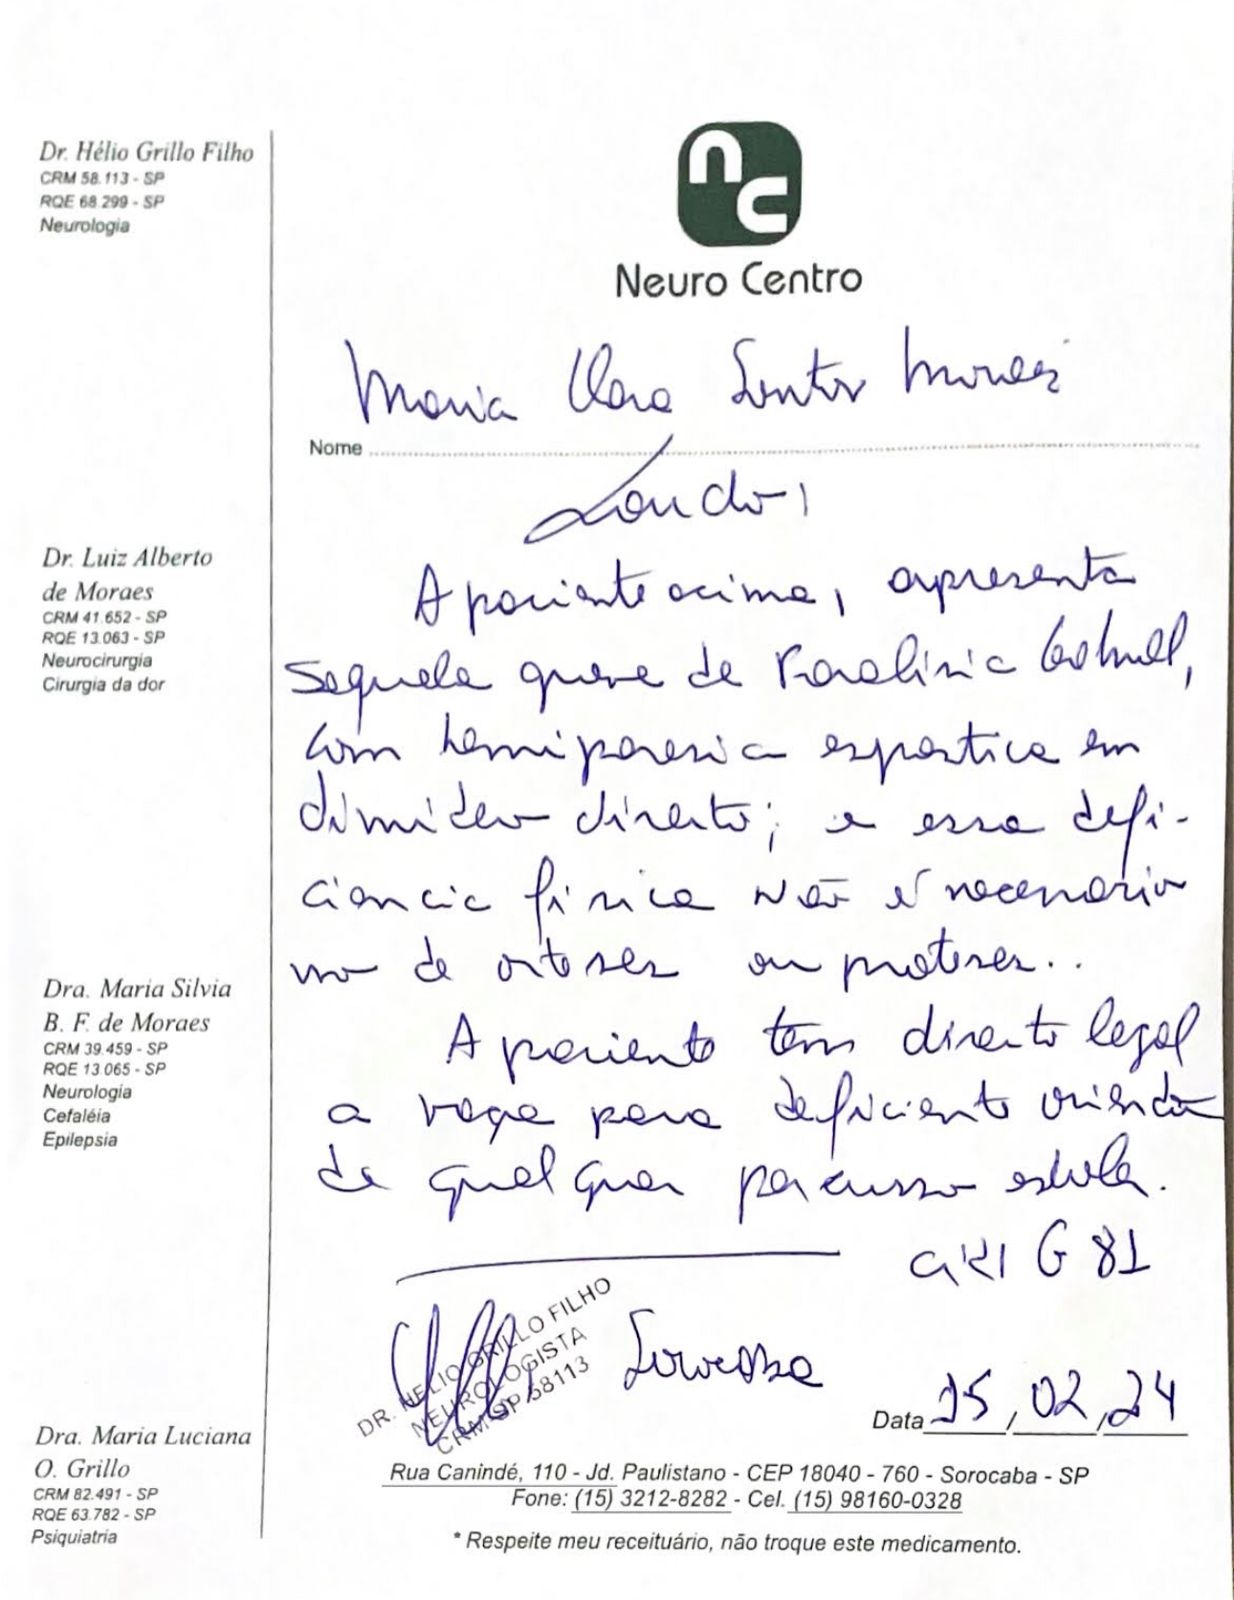 Dr. Hélio Grillo Filho
CRM 58.113 - SP
RQE 68.299 - SP
Neurologia
Dr. Luiz Alberto
de Moraes
CRM 41.652 - SP
RQE 13.063 - SP
Neurocirurgia
Cirurgia da dor
Dra. Maria Silvia
B. F. de Moraes
CRM 39.459 - SP
RQE 13.065 - SP
Neurologia
Cefaléia
Epilepsia
Dra. Maria Luciana
O. Grillo
CRM 82.491 - SP
RQE 63.782 - SP
Psiquiatria
nc
Neuro Centro
Maria Clara Santos Moraes
Nome
Laudo:
A paciente acima, apresenta
sequela grave de Paralisia Cerebral,
com hemiparesia espastica em
dimideo direito; e essa defi-
ciencia fisica não é necessario
uso de orteses ou proteses..
A paciente tem direito legal
a vaga para deficiente oriundo
de qualquer percurso escolar.
G 81
DR. HELIO GRILLO FILHO
NEUROLOGISTA
CRM SP 58113
Sorocaba
Data 15/02/24
Rua Canindé, 110 - Jd. Paulistano - CEP 18040 - 760 - Sorocaba - SP
Fone: (15) 3212-8282 - Cel. (15) 98160-0328
* Respeite meu receituário, não troque este medicamento.